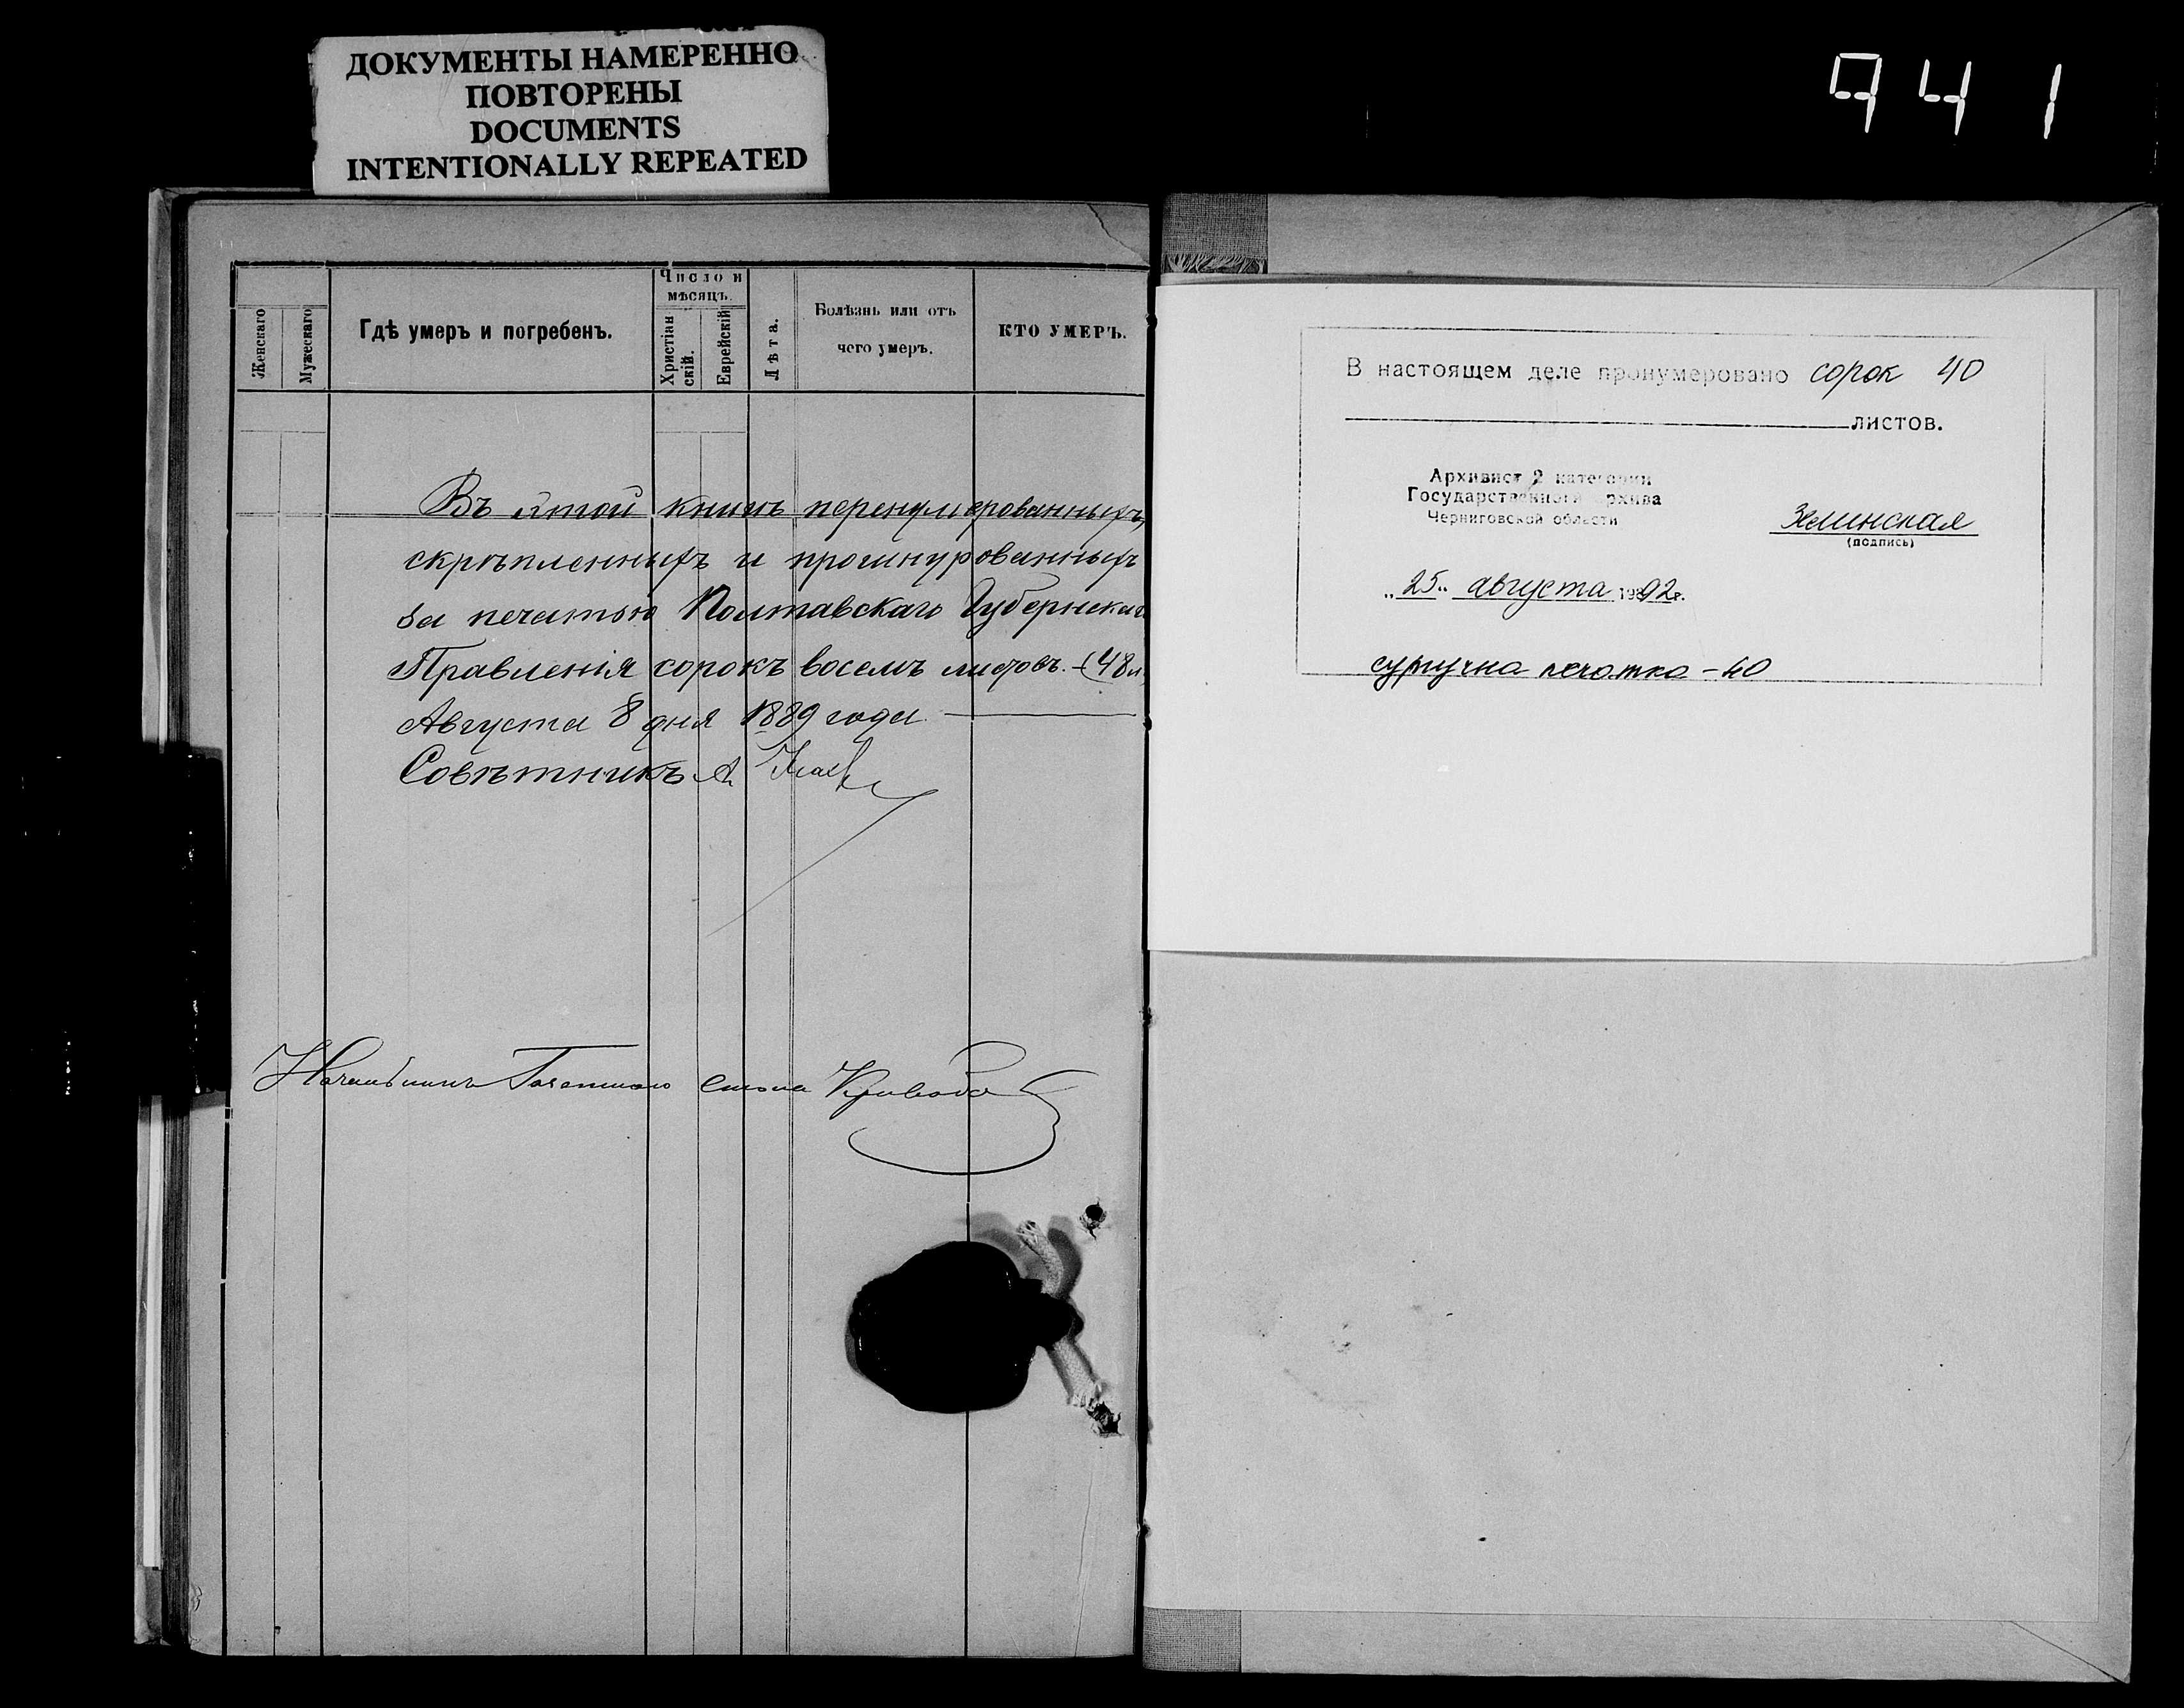 ДОКУМЕНТЫ НАМЕРЕННО
ПОВТОРЕНЫ
DOCUMENTS
INTENTIONALLY REPEATED
941
Женскаго
Мужескаго
Гдѣ умеръ и погребенъ.
Число и
мѣсяцъ.
Христіан
скій.
Еврейскій
Лѣта.
Болѣзнь или отъ
чего умеръ.
КТО УМЕРЪ.
Въ этой книгѣ перенумерованныхъ,
скрѣпленныхъ и прошнурованныхъ
за печатью Полтавскаго Губернскаго
Правленія сорокъ восемь листовъ. (48 л.
Августа 8 дня 1889 года
Совѣтникъ А.
стола
В настоящем деле пронумеровано сорок 40
листов.
Архивист 2 категории
Государственного архива
Черниговской области
(подпись)
„25" августа 1992г.
сургучна печатка - 40